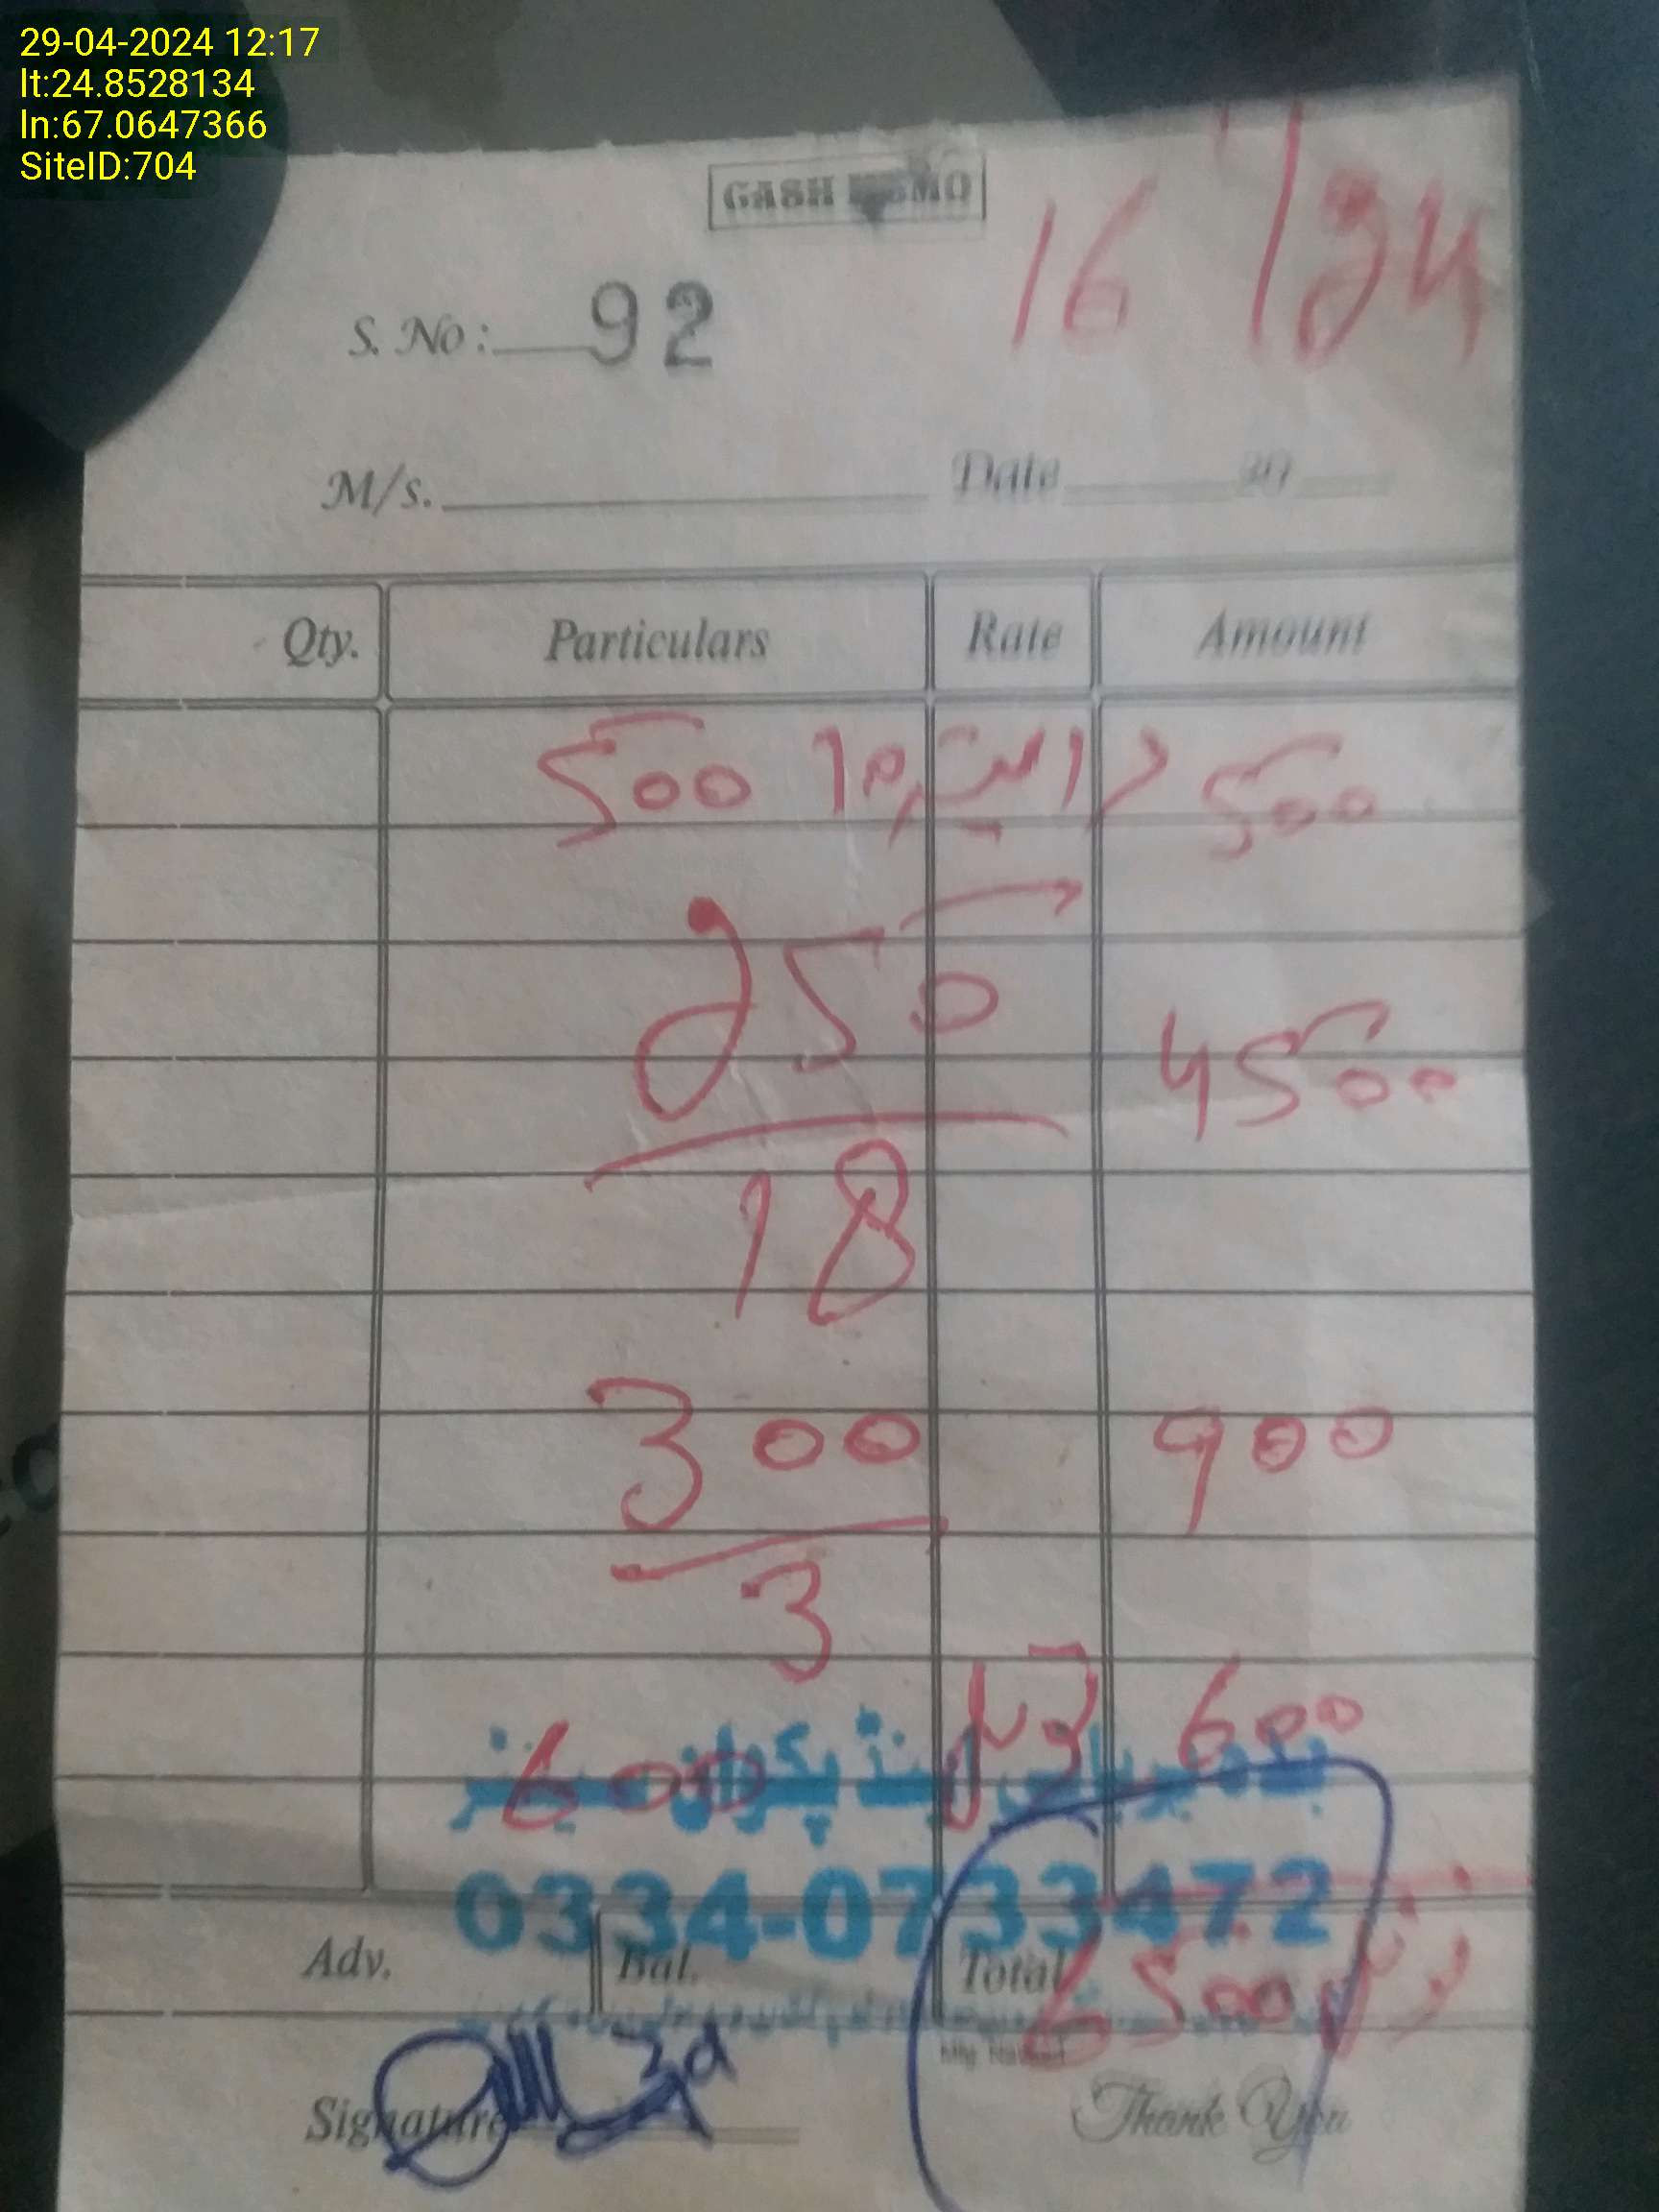 29-04-2024 12:17
lt:24.8528134
ln:67.0647366
SiteID:704
CASH MEMO
16 /24
S. No: 92
M/s. Date 20
Qty. Particulars Rate Amount
500 500
250 4500
18
300 900
3
600 600
بریانی اینڈ پکوان سینٹر
0334-0733472
Adv. Bal. Total 6500
Signature
Thank You